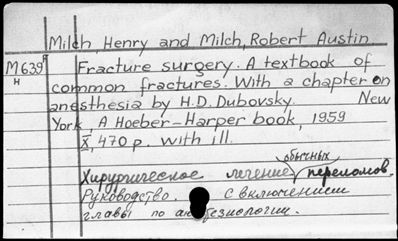 Milch, Henry and Milch, Robert Austin
M639F Fracture surgery. A textbook of
H common fractures. With a chapter on
anesthesia by H.D. Dubovsky. New
York, A Hoeber-Harper book, 1959
X, 470 p. with ill.
обычных
Хирургическое лечение переломов.
Руководство. С включением
главы по анестезиологии.